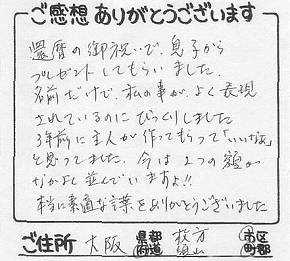 ご感想ありがとうございます
還暦の御祝いで、息子から
プレゼントしてもらいました。
名前だけで、私の事が、よく表現
されているのにびっくりしました
3年前に主人が作ってもらって「いいなぁ」
と思ってました。今は2つの額が
なかよく並んでいますよ!!
本当に素適な言葉をありがとうございました
ご住所 大阪 都道府県 枚方 市区町郡